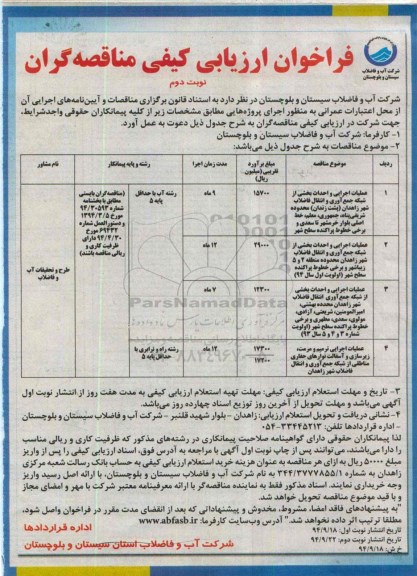 فراخوان ارزیابی کیفی مناقصه گران
نوبت دوم
شرکت آب و فاضلاب
سیستان و بلوچستان
شرکت آب و فاضلاب سیستان و بلوچستان در نظر دارد به استناد قانون برگزاری مناقصات و آیین‌نامه‌های اجرایی آن
از محل اعتبارات عمرانی به منظور اجرای پروژه‌هایی مطابق مشخصات زیر از کلیه پیمانکاران حقوقی واجدشرایط،
جهت شرکت در ارزیابی کیفی مناقصه‌گران به شرح جدول ذیل دعوت به عمل آورد.
۱- کارفرما: شرکت آب و فاضلاب سیستان و بلوچستان
۲- موضوع مناقصات به شرح جدول ذیل می‌باشد:
ردیف موضوع مناقصه مبلغ برآورد تقریبی (میلیون ریال) مدت زمان اجرا رشته و پایه پیمانکار نام مشاور
۱ عملیات اجرایی و احداث بخشی از ۱۵۷۰۰ ۹ ماه رشته آب با حداقل پایه ۵
شبکه جمع آوری و انتقال فاضلاب
شهر زاهدان (پشت زندان) محدوده
شریفی‌پناه، جمهوری، معلم، خط
اصلی بلوار خرمشهر تا سعدی و
برخی خطوط پراکنده سطح شهر
(مناقصه‌گران بایستی
مطابق با بخشنامه
شماره ۹۴/۳۰۵۹۳
مورخ ۱۳۹۴/۳/۵
و دستورالعمل شماره
۶۹۴۳۴ مورخ
۹۴/۴/۳۰ دارای
ظرفیت کاری و
ریالی مناقصه باشند)
طرح و تحقیقات آب
و فاضلاب
۲ عملیات اجرایی و احداث بخشی از ۲۹۰۰۰ ۱۲ ماه
شبکه جمع آوری و انتقال فاضلاب
شهر زاهدان محدوده منطقه ۲ و ۵
زیباشهر و برخی خطوط پراکنده
سطح شهر (اولویت اول سال ۹۴)
۳ عملیات اجرایی و احداث بخشی ۱۲۳۰۰ ۷ ماه
از شبکه جمع آوری انتقال فاضلاب
شهر زاهدان محدوده بهشتی،
امیرالمومنین، شریعتی، آزادی،
مولوی، سعدی، مطهری و برخی
خطوط پراکنده سطح شهر (اولویت
شماره ۳ و ۴ و ۵ سال ۹۳)
۴ عملیات اجرایی ترمیم و مرمت، ۱۷۳۰۰ ۱۲ ماه رشته راه و ترابری با حداقل پایه ۵
زیرسازی و آسفالت نوارهای حفاری
مناطقی از شبکه جمع آوری و انتقال
فاضلاب شهر زاهدان
۳- تاریخ و مهلت استعلام ارزیابی کیفی: مهلت تهیه استعلام ارزیابی کیفی به مدت هفت روز از انتشار نوبت اول
آگهی می‌باشد و مهلت تحویل از آخرین روز توزیع اسناد چهارده روز می‌باشد.
۴- نشانی دریافت و تحویل استعلام ارزیابی: زاهدان - بلوار شهید قلنبر - شرکت آب و فاضلاب سیستان و بلوچستان
- اداره قراردادها تلفن: ۳۳۴۴۵۲۱۳-۰۵۴
لذا پیمانکاران حقوقی دارای گواهینامه صلاحیت پیمانکاری در رشته‌های مذکور که ظرفیت کاری و ریالی مناسب
را دارا می‌باشند، می‌توانند پس از چاپ نوبت اول آگهی با مراجعه به آدرس فوق، اسناد ارزیابی کیفی را پس از واریز
مبلغ ۵۰۰۰۰۰ ریال به ازای هر مناقصه به عنوان هزینه خرید استعلام ارزیابی کیفی به حساب بانک رسالت شعبه مرکزی
زاهدان به شماره ۳۴۴/۳۷۷۷۸۵۵/۱ به نام شرکت آب و فاضلاب سیستان و بلوچستان، با ارائه اصل رسید واریز
وجه خریداری نمایند. اسناد مذکور فقط به نماینده مناقصه‌گر با ارائه معرفینامه معتبر شرکت با مهر و امضای مجاز
و با قید موضوع مناقصه تحویل خواهد شد.
"به پیشنهادهای فاقد امضا، مشروط، مخدوش و پیشنهاداتی که بعد از انقضای مدت مقرر در فراخوان واصل شود،
مطلقا ترتیب اثر داده نخواهد شد." آدرس وب‌سایت کارفرما: www.abfasb.ir
تاریخ انتشار نوبت اول: ۹۴/۹/۱۸
تاریخ انتشار نوبت دوم: ۹۴/۹/۲۲
خ ش: ۹۴/۹/۱۸
اداره قراردادها
شرکت آب و فاضلاب استان سیستان و بلوچستان